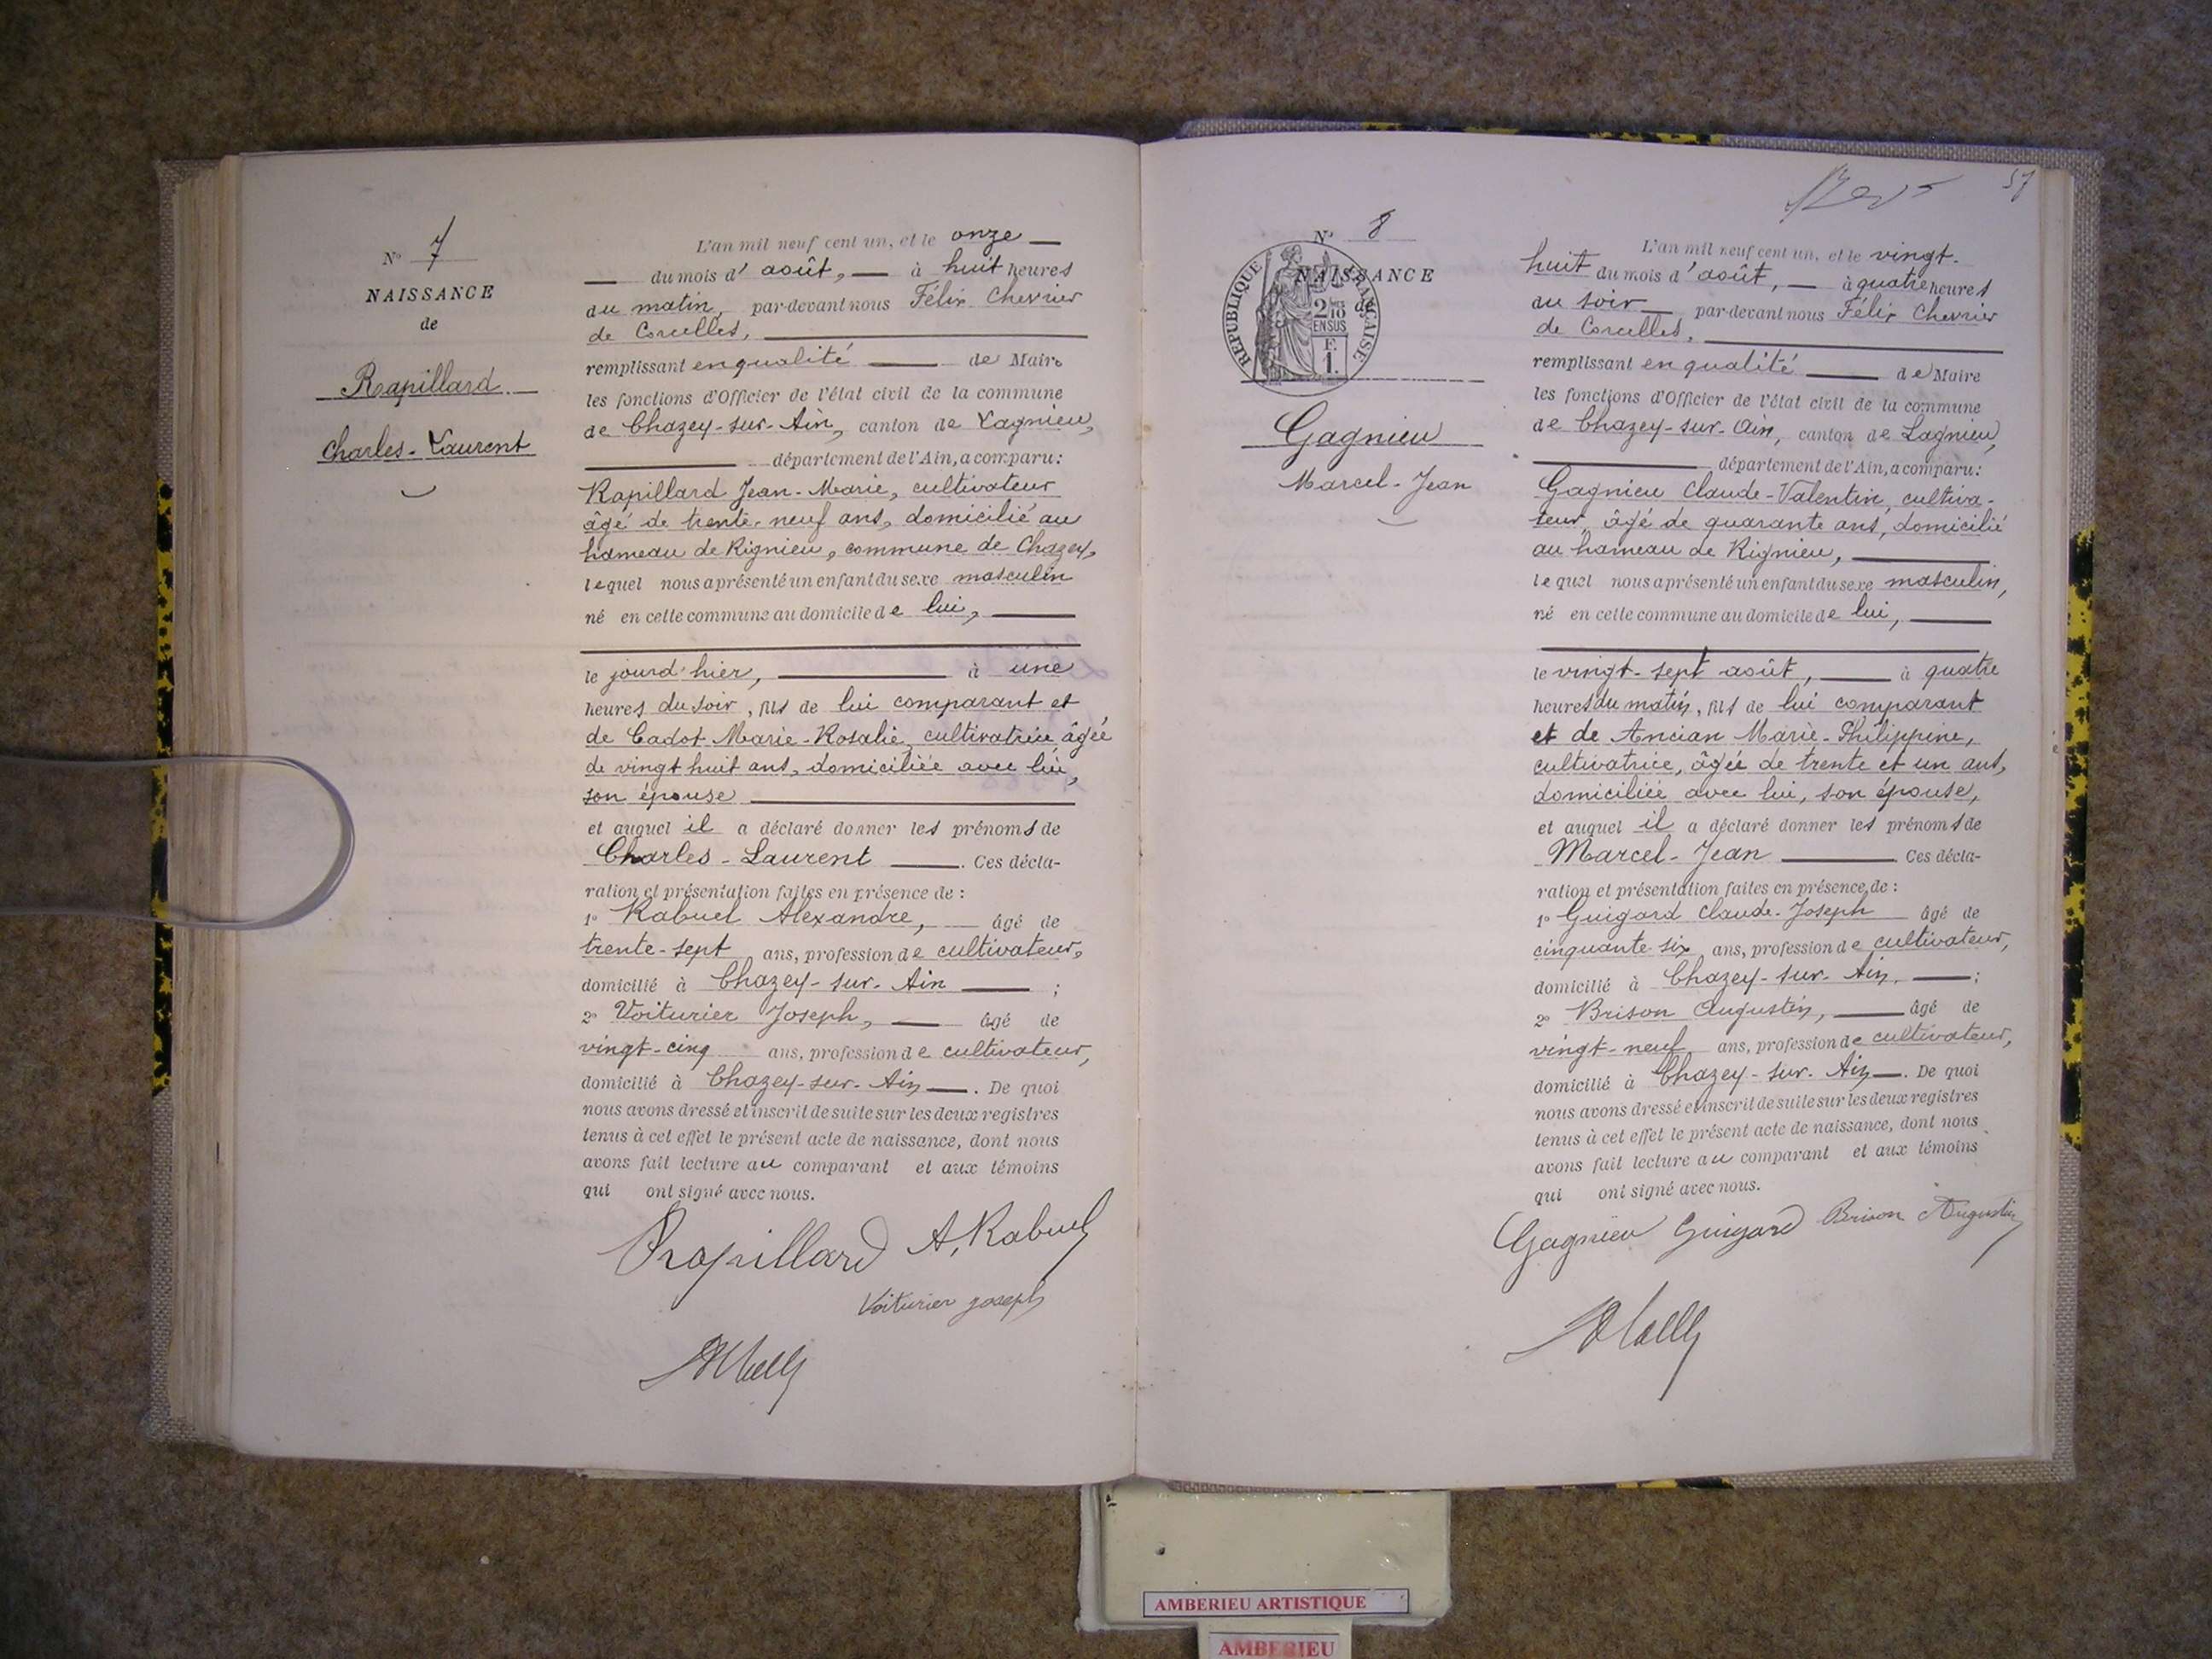 N° 7
NAISSANCE
de
Rapillard
Charles-Laurent
L'an mil neuf cent un, et le onze
du mois d'août, à huit heures
du matin, par-devant nous Félix Chevrier
de Corcelles,
remplissant en qualité de Maire
les fonctions d'Officier de l'état civil de la commune
de Chazey-sur-Ain, canton de Lagnieu,
département de l'Ain, a comparu :
Rapillard Jean-Marie, cultivateur
âgé de trente-neuf ans, domicilié au
hameau de Rignieu, commune de Chazey,
lequel nous a présenté un enfant du sexe masculin
né en cette commune au domicile de lui,
le jourd'hier, à une
heures du soir, fils de lui comparant et
de Cadot Marie-Rosalie, cultivatrice âgée
de vingt huit ans, domiciliée avec lui,
son épouse
et auquel il a déclaré donner les prénoms de
Charles-Laurent. Ces décla-
ration et présentation faites en présence de :
1° Rabuel Alexandre, âgé de
trente-sept ans, profession de cultivateur,
domicilié à Chazey-sur-Ain ;
2° Voiturier Joseph, âgé de
vingt-cinq ans, profession de cultivateur,
domicilié à Chazey-sur-Ain. De quoi
nous avons dressé et inscrit de suite sur les deux registres
tenus à cet effet le présent acte de naissance, dont nous
avons fait lecture au comparant et aux témoins
qui ont signé avec nous.
Rapillard A. Rabuel
Voiturier joseph
57
N° 8
NAISSANCE
de
RÉPUBLIQUE FRANÇAISE
2/10 EN SUS
F. 1.
Gagnieu
Marcel-Jean
L'an mil neuf cent un, et le vingt-
huit du mois d'août, à quatre heures
du soir par-devant nous Félix Chevrier
de Corcelles,
remplissant en qualité de Maire
les fonctions d'Officier de l'état civil de la commune
de Chazey-sur-Ain, canton de Lagnieu,
département de l'Ain, a comparu :
Gagnieu Claude-Valentin, cultiva-
teur, âgé de quarante ans, domicilié
au hameau de Rignieu,
lequel nous a présenté un enfant du sexe masculin,
né en cette commune au domicile de lui,
le vingt-sept août, à quatre
heures du matin, fils de lui comparant
et de Ancian Marie-Philippine,
cultivatrice, âgée de trente et un ans,
domiciliée avec lui, son épouse,
et auquel il a déclaré donner les prénoms de
Marcel-Jean Ces décla-
ration et présentation faites en présence de :
1° Guigard Claude-Joseph âgé de
cinquante-six ans, profession de cultivateur,
domicilié à Chazey-sur-Ain, ;
2° Brison Augustin, âgé de
vingt-neuf ans, profession de cultivateur,
domicilié à Chazey-sur-Ain. De quoi
nous avons dressé et inscrit de suite sur les deux registres
tenus à cet effet le présent acte de naissance, dont nous
avons fait lecture au comparant et aux témoins
qui ont signé avec nous.
Gagnieu Guigard Brison Augustin
AMBERIEU ARTISTIQUE
AMBERIEU